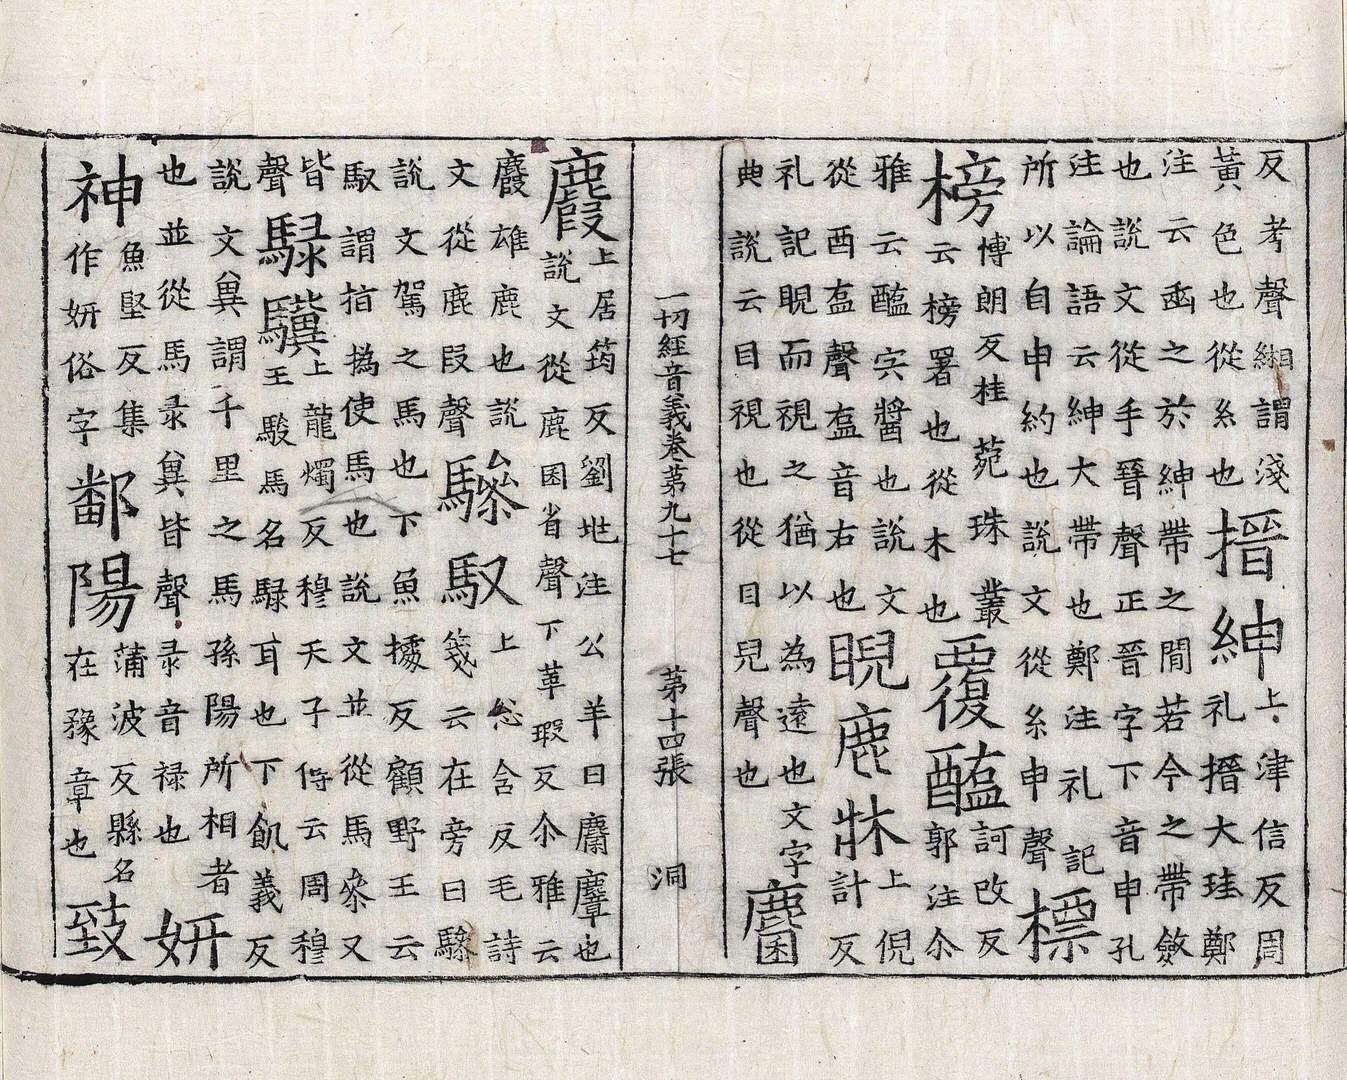 反考聲緗謂淺
黃色也從糸也
搢紳
上津信反周
礼搢大珪鄭
注云函之於紳帶之間若今之帶斂
也說文從手晉聲正晉字下音申孔
注論語云紳大帶也鄭注礼記
所以自申約也說文從糸申聲
標
榜
博朗反桂菀珠叢
云榜署也從木也
覆醢
訶改反
郭注尒
雅云醢宍醬也說文
從酉𥁓聲𥁓音右也
睨鹿牀
上倪
計反
礼記睨而視之猶以為遠也文字
典說云目視也從目兒聲也
麕
一切經音義卷第九十七 第十四張 洞
麚
上居筠反劉兆注公羊曰麏麞也
說文從鹿囷省聲下革瑕反尒雅云
麚雄鹿也說
文從鹿叚聲
驂馭
上忩含反毛詩
箋云在旁曰驂
說文駕之馬也下魚據反顧野王云
馭謂指撝使馬也說文並從馬叅又
皆
聲
騄驥
上龍燭反穆天子傳云周穆
王駿馬名騄耳也下飢義反
說文冀謂千里之馬孫陽所相者
也並從馬彔冀皆聲彔音禄也
妍
神
魚堅反集
作妍俗字
鄱陽
蒲波反縣名
在豫章也
致